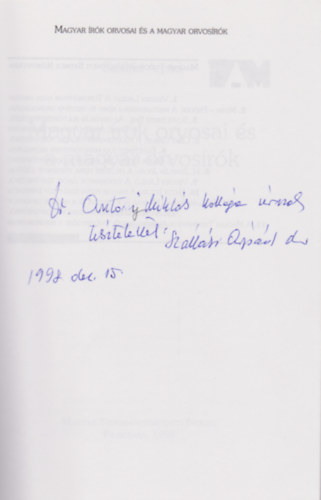 MAGYAR ÍRÓK ORVOSAI ÉS A MAGYAR ORVOSÍRÓK
Dr. Miklós kolléga úrnak
tisztelettel: Szállási Árpád dr
1998 dec. 15.